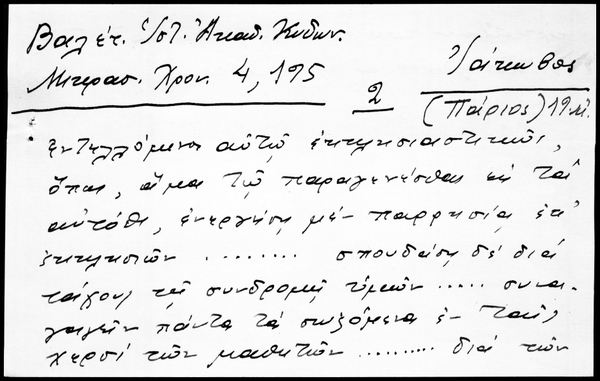 Βαλέτ. Ἱστ. Ἀκαδ. Κυδων.
Μικρασ. Χρον. 4, 195
2
Ἰάκωβος
(Πάριος) 19 αἰ.
ἐντελλόμενοι αὐτῷ ἐκκλησιαστικῶς,
ὅπως, ἅμα τῷ παραγενέσθαι εἰς τὰ
αὐτόθι, ἐνεργήσῃ μὲν παρρησίᾳ ἐπ'
ἐκκλησιῶν ........ σπουδάσῃ δὲ διὰ
τάχους τῇ συνδρομῇ ὑμῶν ..... συνα-
γαγεῖν πάντα τὰ σωζόμενα ἐν ταῖς
χερσὶ τῶν μαθητῶν ......... διὰ τῶν